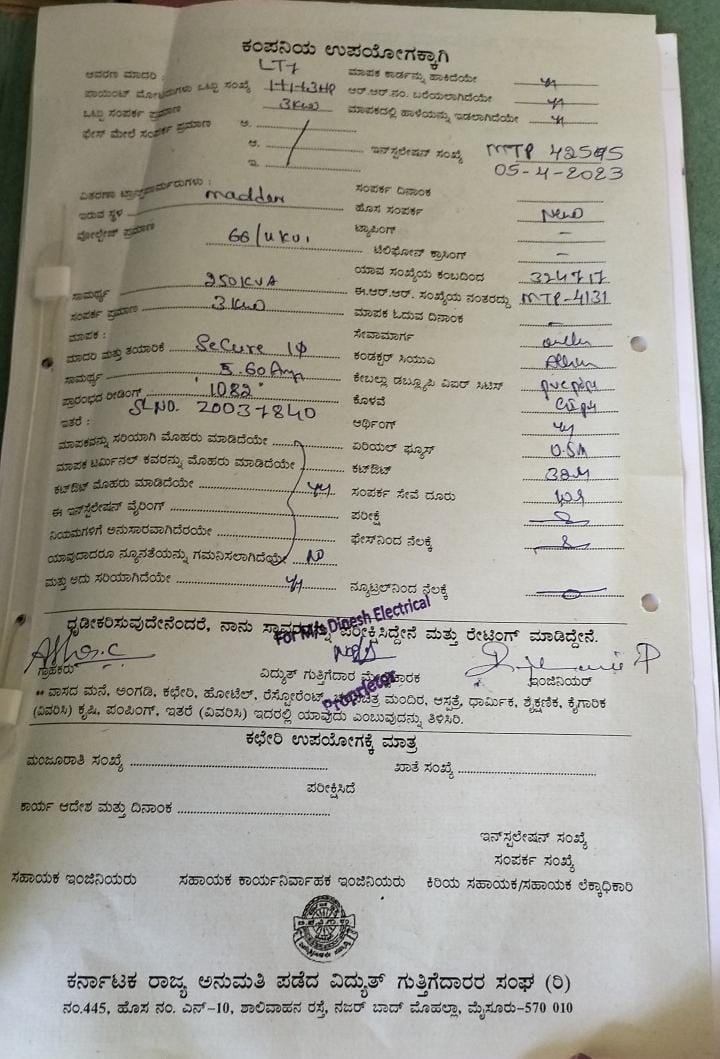 ಕಂಪನಿಯ ಉಪಯೋಗಕ್ಕಾಗಿ
ಆವರಣ ಮಾದರಿ : LT7 ಮಾಪಕ ಕಾರ್ಡನ್ನು ಹಾಕಿದೆಯೇ
ಪಾಯಿಂಟ್ ಮೋಟಾರುಗಳು ಒಟ್ಟು ಸಂಖ್ಯೆ 1+1+3HP ಆರ್.ಆರ್.ನಂ. ಬರೆಯಲಾಗಿದೆಯೇ
ಒಟ್ಟು ಸಂಪರ್ಕ ಪ್ರಮಾಣ 3KW ಮಾಪಕದಲ್ಲಿ ಹಾಳೆಯನ್ನು ಇಡಲಾಗಿದೆಯೇ
ಫೇಸ್ ಮೇಲೆ ಸಂಪರ್ಕ ಪ್ರಮಾಣ ಅ.
ಆ. ಇನ್‌ಸ್ಟಲೇಷನ್ ಸಂಖ್ಯೆ MTP
ಇ. 05-4-2023
ವಿತರಣಾ ಟ್ರಾನ್ಸ್‌ಫಾರ್ಮರುಗಳು : ಸಂಪರ್ಕ ದಿನಾಂಕ
ಇರುವ ಸ್ಥಳ ಹೊಸ ಸಂಪರ್ಕ New
ವೋಲ್ಟೇಜ್ ಪ್ರಮಾಣ ಟ್ಯಾಪಿಂಗ್ -
ಟೆಲಿಫೋನ್ ಕ್ರಾಸಿಂಗ್ -
ಯಾವ ಸಂಖ್ಯೆಯ ಕಂಬದಿಂದ
ಸಾಮರ್ಥ್ಯ 250KVA ಈ.ಆರ್.ಆರ್. ಸಂಖ್ಯೆಯ ನಂತರದ್ದು MTP-4131
ಸಂಪರ್ಕ ಪ್ರಮಾಣ 3KW ಮಾಪಕ ಓದುವ ದಿನಾಂಕ
ಮಾಪಕ : ಸೇವಾಮಾರ್ಗ
ಮಾದರಿ ಮತ್ತು ತಯಾರಿಕೆ Secure 1Φ ಕಂಡಕ್ಟರ್ ಸಿಯುಎ
ಸಾಮರ್ಥ್ಯ 5.60Amp ಕೇಬಲ್ಲಾ ಡಬ್ಲ್ಯೂಪಿ ವಿಐರ್ ಸಿಟಿಸ್
ಪ್ರಾರಂಭದ ರೀಡಿಂಗ್ "1082" ಕೊಳವೆ
SL.NO. 20037840
ಇತರೆ : ಆರ್ಥಿಂಗ್
ಮಾಪಕವನ್ನು ಸರಿಯಾಗಿ ಮೊಹರು ಮಾಡಿದೆಯೇ ಏರಿಯಲ್ ಫ್ಯೂಸ್
ಮಾಪಕ ಟರ್ಮಿನಲ್ ಕವರನ್ನು ಮೊಹರು ಮಾಡಿದೆಯೇ ಕಟ್‌ಔಟ್
ಕಟ್‌ಔಟ್ ಮೊಹರು ಮಾಡಿದೆಯೇ ಸಂಪರ್ಕ ಸೇವೆ ದೂರು
ಈ ಇನ್‌ಸ್ಟಲೇಷನ್ ವೈರಿಂಗ್ ಪರೀಕ್ಷೆ
ನಿಯಮಗಳಿಗೆ ಅನುಸಾರವಾಗಿದೆರೆಯೇ ಫೇಸ್‌ನಿಂದ ನೆಲಕ್ಕೆ
ಯಾವುದಾದರೂ ನ್ಯೂನತೆಯನ್ನು ಗಮನಿಸಲಾಗಿದೆಯೇ NO
ಮತ್ತು ಅದು ಸರಿಯಾಗಿದೆಯೇ ನ್ಯೂಟ್ರಲ್‌ನಿಂದ ನೆಲಕ್ಕೆ
ಧೃಡೀಕರಿಸುವುದೇನೆಂದರೆ, ನಾನು ಪರೀಕ್ಷಿಸಿದ್ದೇನೆ ಮತ್ತು ರೇಟಿಂಗ್ ಮಾಡಿದ್ದೇನೆ.
For M/s Dinesh Electrical
Proprietor
ಗ್ರಾಹಕರು ವಿದ್ಯುತ್ ಗುತ್ತಿಗೆದಾರ ಇಂಜಿನಿಯರ್
** ವಾಸದ ಮನೆ, ಅಂಗಡಿ, ಕಛೇರಿ, ಹೋಟೆಲ್, ರೆಸ್ಟೋರೆಂಟ್, ಮಂದಿರ, ಆಸ್ಪತ್ರೆ, ಧಾರ್ಮಿಕ, ಶೈಕ್ಷಣಿಕ, ಕೈಗಾರಿಕ
(ವಿವರಿಸಿ) ಕೃಷಿ, ಪಂಪಿಂಗ್, ಇತರೆ (ವಿವರಿಸಿ) ಇದರಲ್ಲಿ ಯಾವುದು ಎಂಬುವುದನ್ನು ತಿಳಿಸಿರಿ.
ಕಛೇರಿ ಉಪಯೋಗಕ್ಕೆ ಮಾತ್ರ
ಮಂಜೂರಾತಿ ಸಂಖ್ಯೆ ಖಾತೆ ಸಂಖ್ಯೆ
ಪರೀಕ್ಷಿಸಿದೆ
ಕಾರ್ಯ ಆದೇಶ ಮತ್ತು ದಿನಾಂಕ
ಇನ್‌ಸ್ಟಲೇಷನ್ ಸಂಖ್ಯೆ
ಸಂಪರ್ಕ ಸಂಖ್ಯೆ
ಸಹಾಯಕ ಇಂಜಿನಿಯರು ಸಹಾಯಕ ಕಾರ್ಯನಿರ್ವಾಹಕ ಇಂಜಿನಿಯರು ಕಿರಿಯ ಸಹಾಯಕ/ಸಹಾಯಕ ಲೆಕ್ಕಾಧಿಕಾರಿ
ಕರ್ನಾಟಕ ರಾಜ್ಯ ಅನುಮತಿ ಪಡೆದ ವಿದ್ಯುತ್ ಗುತ್ತಿಗೆದಾರರ ಸಂಘ (ರಿ)
ನಂ.445, ಹೊಸ ನಂ. ಎನ್-10, ಶಾಲಿವಾಹನ ರಸ್ತೆ, ನಜರ್ ಬಾದ್ ಮೊಹಲ್ಲಾ, ಮೈಸೂರು-570 010